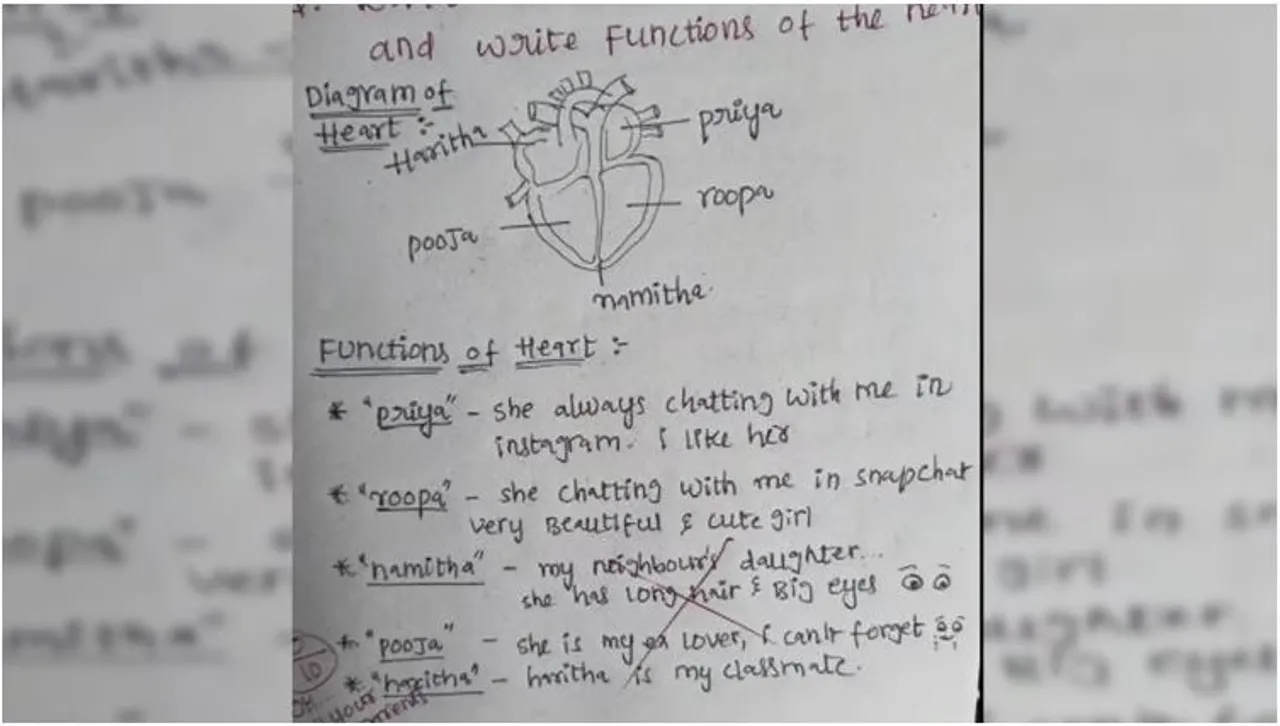 and write Functions of the
Diagram of
Heart :-
Haritha
priya
roopa
pooja
namitha.
Functions of Heart :-
* "priya" - she always chatting with me in
instagram. i like her
* "roopa" - she chatting with me in snapchat
very Beautiful & cute girl
* "namitha" - my neighbour's daughter...
she has long hair & Big eyes
* "pooja" - she is my ex lover, i can't forget
* "haritha" - haritha is my classmate.
10
your